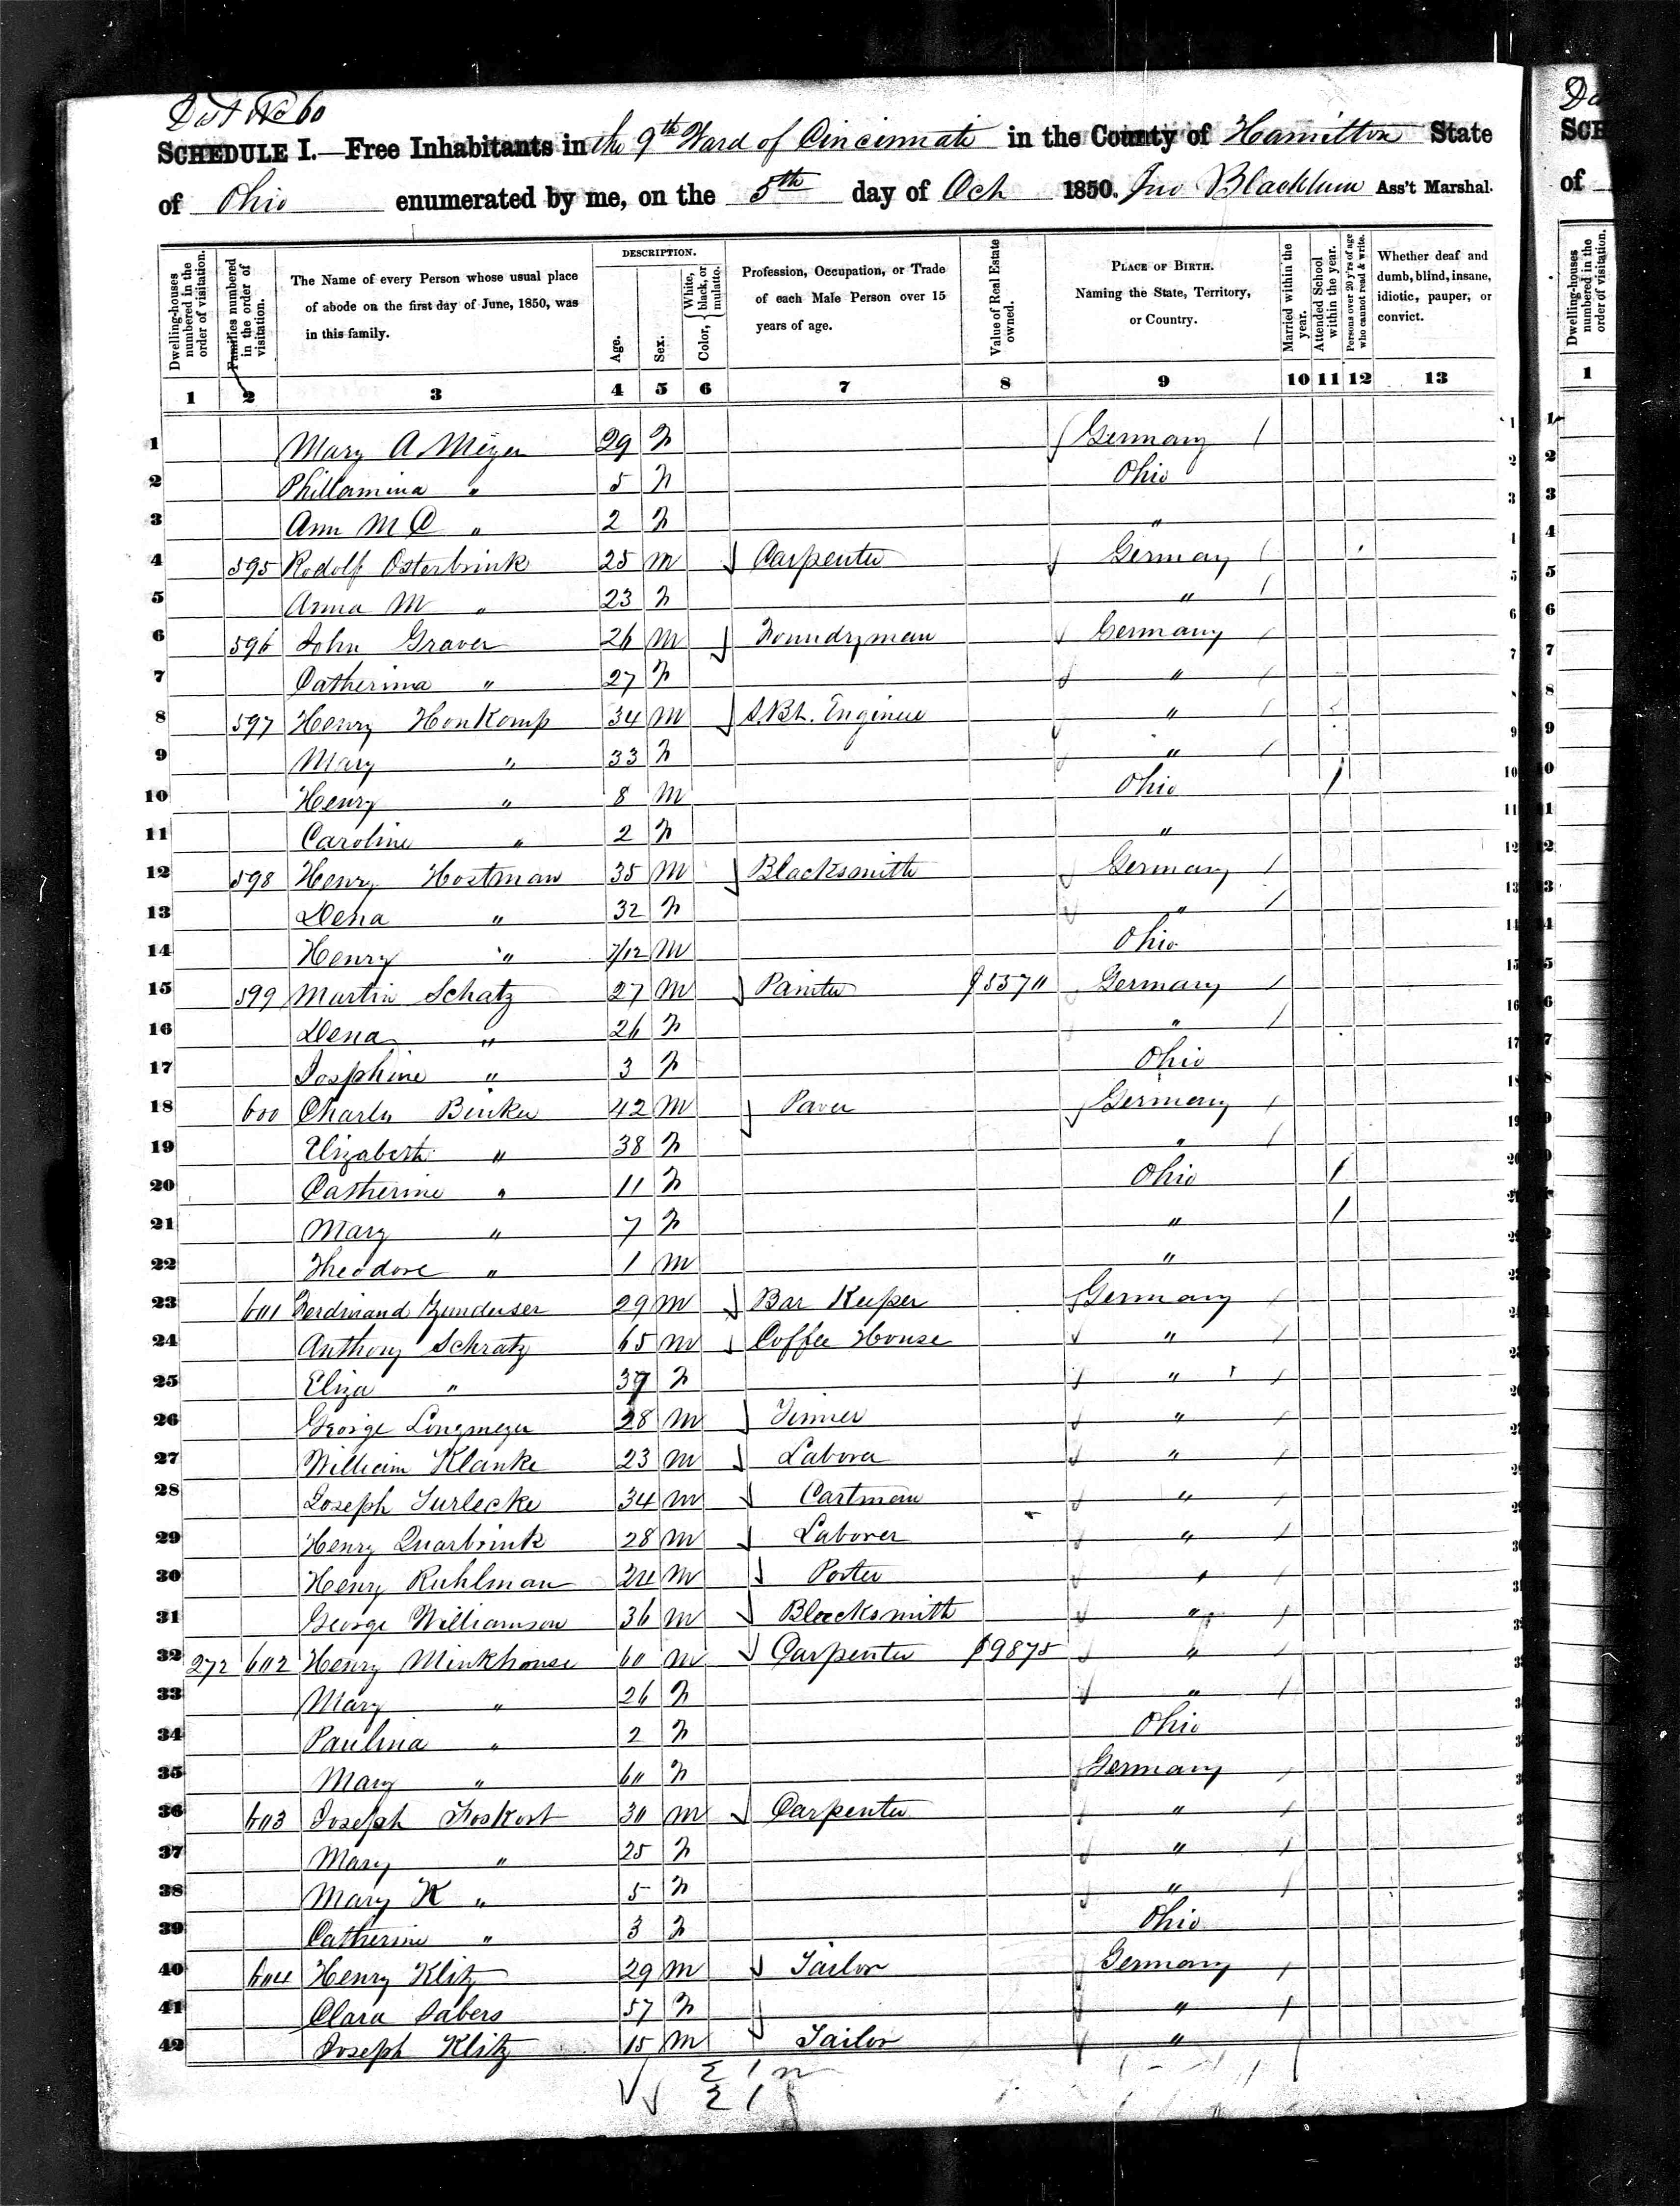 Dist No 60
SCHEDULE I.—Free Inhabitants in the 9th Ward of Cincinnati in the County of Hamilton State
of Ohio enumerated by me, on the 5th day of Oct 1850. Jno Blackburn Ass't Marshal.
Dwelling-houses numbered in the order of visitation.
Families numbered in the order of visitation.
The Name of every Person whose usual place of abode on the first day of June, 1850, was in this family.
DESCRIPTION.
Age.
Sex.
Color, { White, black, or mulatto.
Profession, Occupation, or Trade of each Male Person over 15 years of age.
Value of Real Estate owned.
PLACE OF BIRTH. Naming the State, Territory, or Country.
Married within the year.
Attended School within the year.
Persons over 20 y'rs of age who cannot read & write.
Whether deaf and dumb, blind, insane, idiotic, pauper, or convict.
1 2 3 4 5 6 7 8 9 10 11 12 13
1 Mary A Meyer 29 F Germany
2 Phillamina " 5 F Ohio
3 Ann M C " 2 F "
4 595 Rodolf Osterbrink 25 M Carpenter Germany
5 Anna M " 23 F "
6 596 John Graver 26 M Foundryman Germany
7 Catherina " 27 F "
8 597 Henry HonKomp 34 M S.Bt. Engineer "
9 Mary " 33 F "
10 Henry " 8 M Ohio /
11 Caroline " 2 F "
12 598 Henry Hostman 35 M Blacksmith Germany
13 Dena " 32 F "
14 Henry " 7/12 M Ohio
15 599 Martin Schatz 27 M Painter $5370 Germany
16 Dena " 26 F "
17 Josephine " 3 F Ohio
18 600 Charles Binker 42 M Paver Germany
19 Elizabeth " 38 F "
20 Catherine " 11 F Ohio /
21 Mary " 7 F " /
22 Theodore " 1 M "
23 601 Ferdinand 29 M Bar Keeper Germany
24 Anthony Schratz 65 M Coffee House "
25 Eliza " 39 F "
26 George Longmeyer 28 M Tinner "
27 William Klanke 23 M Labora "
28 Joseph Surlecke 34 M Cartman "
29 Henry Quarbrink 28 M Laborer "
30 Henry Ruhlman 24 M Porter "
31 George Williamson 36 M Blacksmith "
32 272 602 Henry Minkhouse 60 M Carpenter $9875 "
33 Mary " 26 F "
34 Paulina " 2 F Ohio
35 Mary " 60 F Germany
36 603 Joseph 30 M Carpenter "
37 Mary " 25 F "
38 Mary K " 5 F "
39 Catherine " 3 F Ohio
40 604 Henry Klitz 29 M Tailor Germany
41 Clara Sabers 57 F "
42 Joseph Klitz 15 M Tailor "
21 m
21 f